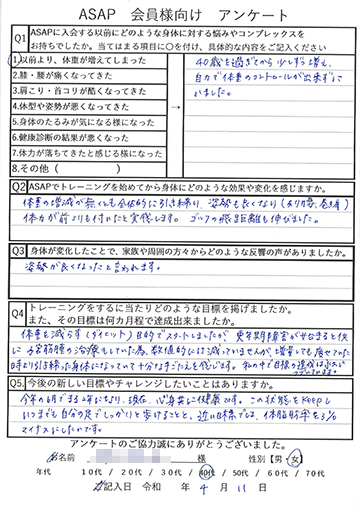 ASAP 会員様向け アンケート
Q1
ASAPに入会する以前にどのような身体に対する悩みやコンプレックスを
お持ちでしたか。当てはまる項目に〇を付け、具体的な内容をご記入ください
1.以前より、体重が増えてしまった
2.膝・腰が痛くなってきた
3.肩こり・首コリが酷くなってきた
4.体型や姿勢が悪くなってきた
5.身体のたるみが気になる様になった
6.健康診断の結果が悪くなった
7.体力が落ちてきたと感じる様になった
8.その他( )
→
40歳を過ぎてから少しずつ増え、
自力で体重のコントロールが出来ずに
いました。
Q2 ASAPでトレーニングを始めてから身体にどのような効果や変化を感じますか。
体重の増減が無くても全体的に引き締まり、姿勢も良くなり(反り腰、巻き肩)
体力が前よりも付いたと実感します。ゴルフの飛距離も伸びました。
Q3 身体が変化したことで、家族や周囲の方々からどのような反響の声がありましたか。
姿勢が良くなったと言われます。
Q4
トレーニングをするに当たりどのような目標を掲げましたか。
また、その目標は何カ月程で達成出来ましたか。
体重を減らす(ダイエット)目的でスタートしましたが、更年期障害が始まると共
に子宮筋腫の治療もしていた為、数値的には減っていませんが、増量しても痩せていた
時より引き締った身体になっていて十分な手ごたえを感じます。私の中で目標の達成は
Q5. 今後の新しい目標やチャレンジしたいことはありますか。
今年の6月でまる4年になり、現在、心身共に健康です。この状態をkeepし
いつまでも自分の足でしっかりと歩けることと、近い目標では、体脂肪率を3%
マイナスにしたいです。
アンケートのご協力誠にありがとうございました。
お名前 様 性別【男・女】
年代 10代 / 20代 / 30代 / 40代 / 50代 / 60代 / 70代
ご記入日 令和 年 4 月 11 日